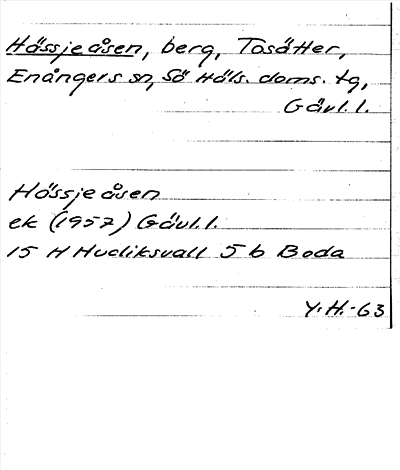 Hässjeåsen, berg, Tosätter,
Enångers sn, Sö Häls. doms. tg,
Gävl. l.
Hässjeåsen
ek (1957) Gävl. l.
15 H Hudiksvall 5 b Boda
Y. H. -63